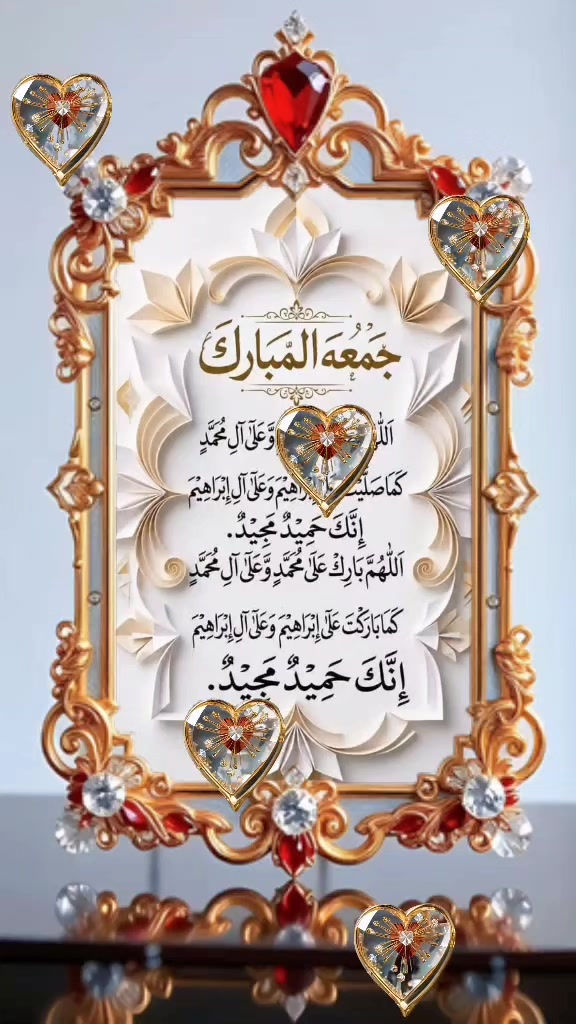 جَمْعُهَ المَّبَارَكَ
اَللّٰ وَّعَلٰٓى اٰلِ مُحَمَّدٍ
كَمَا صَلَّيْتَ وَعَلٰٓى اٰلِ اِبْرَاهِيْمَ
اِنَّكَ حَمِيْدٌ مَّجِيْدٌ.
اَللّٰهُمَّ بَارِكْ عَلٰى مُحَمَّدٍ وَّعَلٰٓى اٰلِ مُحَمَّدٍ
كَمَا بَارَكْتَ عَلٰٓى اِبْرَاهِيْمَ وَعَلٰٓى اٰلِ اِبْرَاهِيْمَ
اِنَّكَ حَمِيْدٌ مَّجِيْدٌ.